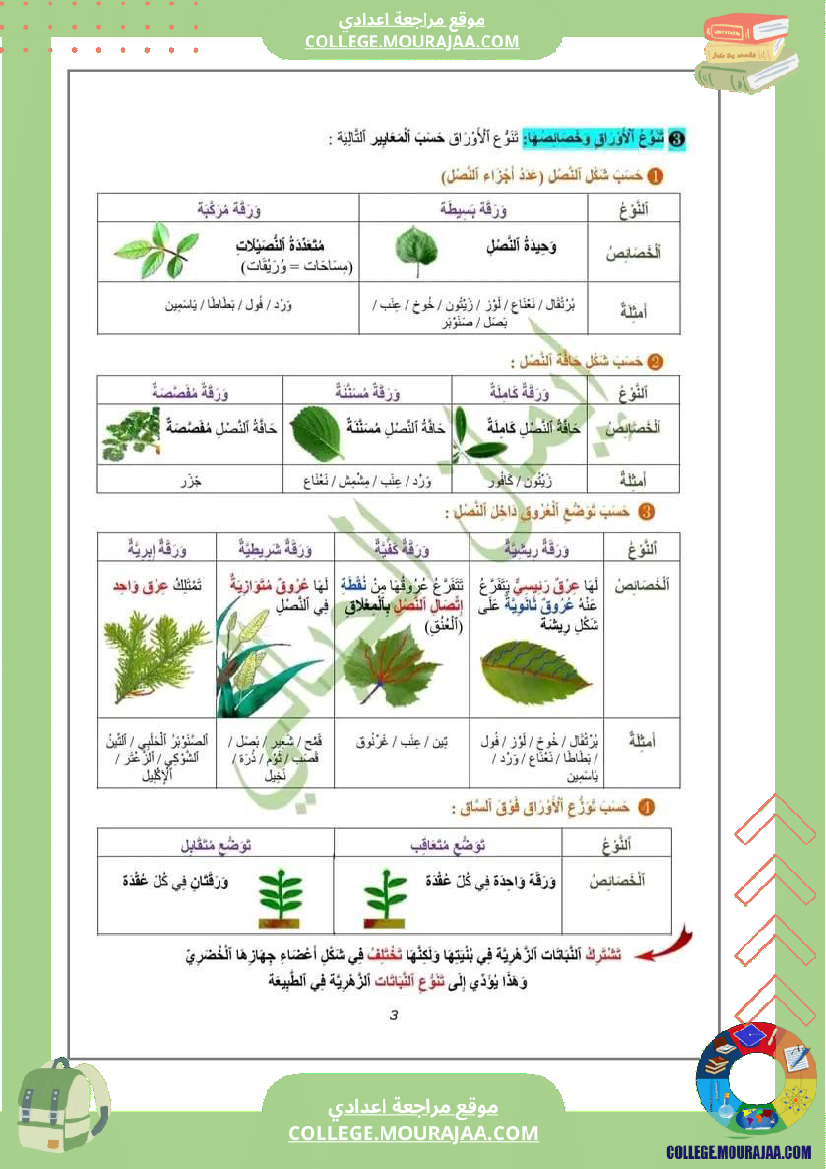 موقع مراجعة اعدادي
COLLEGE.MOURAJAA.COM
❸ تَنَوُّعُ ٱلْأَوْرَاقِ وَخَصَائِصُهَا: تَنَوُّع ٱلْأَوْرَاق حَسَبَ ٱلْمَعَايِير ٱلتَّالِيَة :
❶ حَسَبَ شَكْلِ ٱلنَّصْل (عَدَدُ أَجْزَاء ٱلنَّصْل)
ٱلنَّوْعُ وَرَقَة بَسِيطَة وَرَقَة مُرَكَّبَة
ٱلْخَصَائِصُ وَحِيدَةُ ٱلنَّصْلِ مُتَعَدِّدَةُ ٱلنُّصَيْلَاتِ
(مِسَاحَات = وُرَيْقَات)
أَمْثِلَةٌ بُرْتُقَال / نَعْنَاع / لَوْز / زَيْتُون / خُوخ / عِنَب / وَرْد / فُول / بَطَاطَا / يَاسَمِين
بَصَل / صَنَوْبَر
❷ حَسَبَ شَكْلِ حَافَّةِ ٱلنَّصْل :
ٱلنَّوْعُ وَرَقَةٌ كَامِلَةٌ وَرَقَةٌ مُسَنَّنَةٌ وَرَقَةٌ مُفَصَّصَةٌ
ٱلْخَصَائِصُ حَافَّةُ ٱلنَّصْلِ كَامِلَةٌ حَافَّةُ ٱلنَّصْلِ مُسَنَّنَةٌ حَافَّةُ ٱلنَّصْلِ مُفَصَّصَةٌ
أَمْثِلَةٌ زَيْتُون / كَافُور وَرْد / عِنَب / مِشْمِش / نَعْنَاع جَزَر
❸ حَسَبَ تَوَضُّعِ ٱلْعُرُوقِ دَاخِلَ ٱلنَّصْل :
ٱلنَّوْعُ وَرَقَةٌ رِيشِيَّةٌ وَرَقَةٌ كَفِّيَّةٌ وَرَقَةٌ شَرِيطِيَّةٌ وَرَقَةٌ إِبَرِيَّةٌ
ٱلْخَصَائِصُ لَهَا عِرْقٌ رَئِيسِيٌّ يَتَفَرَّعُ تَتَفَرَّعُ عُرُوقُهَا مِنْ نُقْطَةِ لَهَا عُرُوقٌ مُتَوَازِيَةٌ تَمْتَلِكُ عِرْق وَاحِد
عَنْهُ عُرُوقٌ ثَانَوِيَّةٌ عَلَى إِتِّصَالِ ٱلنَّصْلِ بِٱلْمِعْلَاقِ فِي ٱلنَّصْلِ
شَكْلِ رِيشَة (ٱلْعُنُقِ)
أَمْثِلَةٌ بُرْتُقَال / خُوخ / لَوْز / فُول تِين / عِنَب / غَرْنُوق قَمْح / شَعِير / بَصَل / ٱلصَّنَوْبَرُ ٱلْحَلَبِي / ٱلتِّينُ
/ بَطَاطَا / نَعْنَاع / وَرْد / قَصَب / ثُوْم / ذُرَة / ٱلشَّوْكِي / ٱلزَّعْتَر /
يَاسَمِين نَخِيل ٱلْإِكْلِيل
❹ حَسَبَ تَوَزُّعِ ٱلْأَوْرَاقِ فَوْقَ ٱلسَّاق :
ٱلنَّوْعُ تَوَضُّع مُتَعَاقِب تَوَضُّع مُتَقَابِل
ٱلْخَصَائِصُ وَرَقَة وَاحِدَة فِي كُلِّ عُقْدَة وَرَقَتَانِ فِي كُلِّ عُقْدَة
تَشْتَرِكُ ٱلنَّبَاتَات ٱلزَّهْرِيَّة فِي بُنْيَتِهَا وَلَكِنَّهَا تَخْتَلِفُ فِي شَكْلِ أَعْضَاءِ جِهَازِهَا ٱلْخُضَرِيّ
وَهَذَا يُؤَدِّي إِلَى تَنَوُّعِ ٱلنَّبَاتَات ٱلزَّهْرِيَّة فِي ٱلطَّبِيعَة
3
موقع مراجعة اعدادي
COLLEGE.MOURAJAA.COM
COLLEGE.MOURAJAA.COM